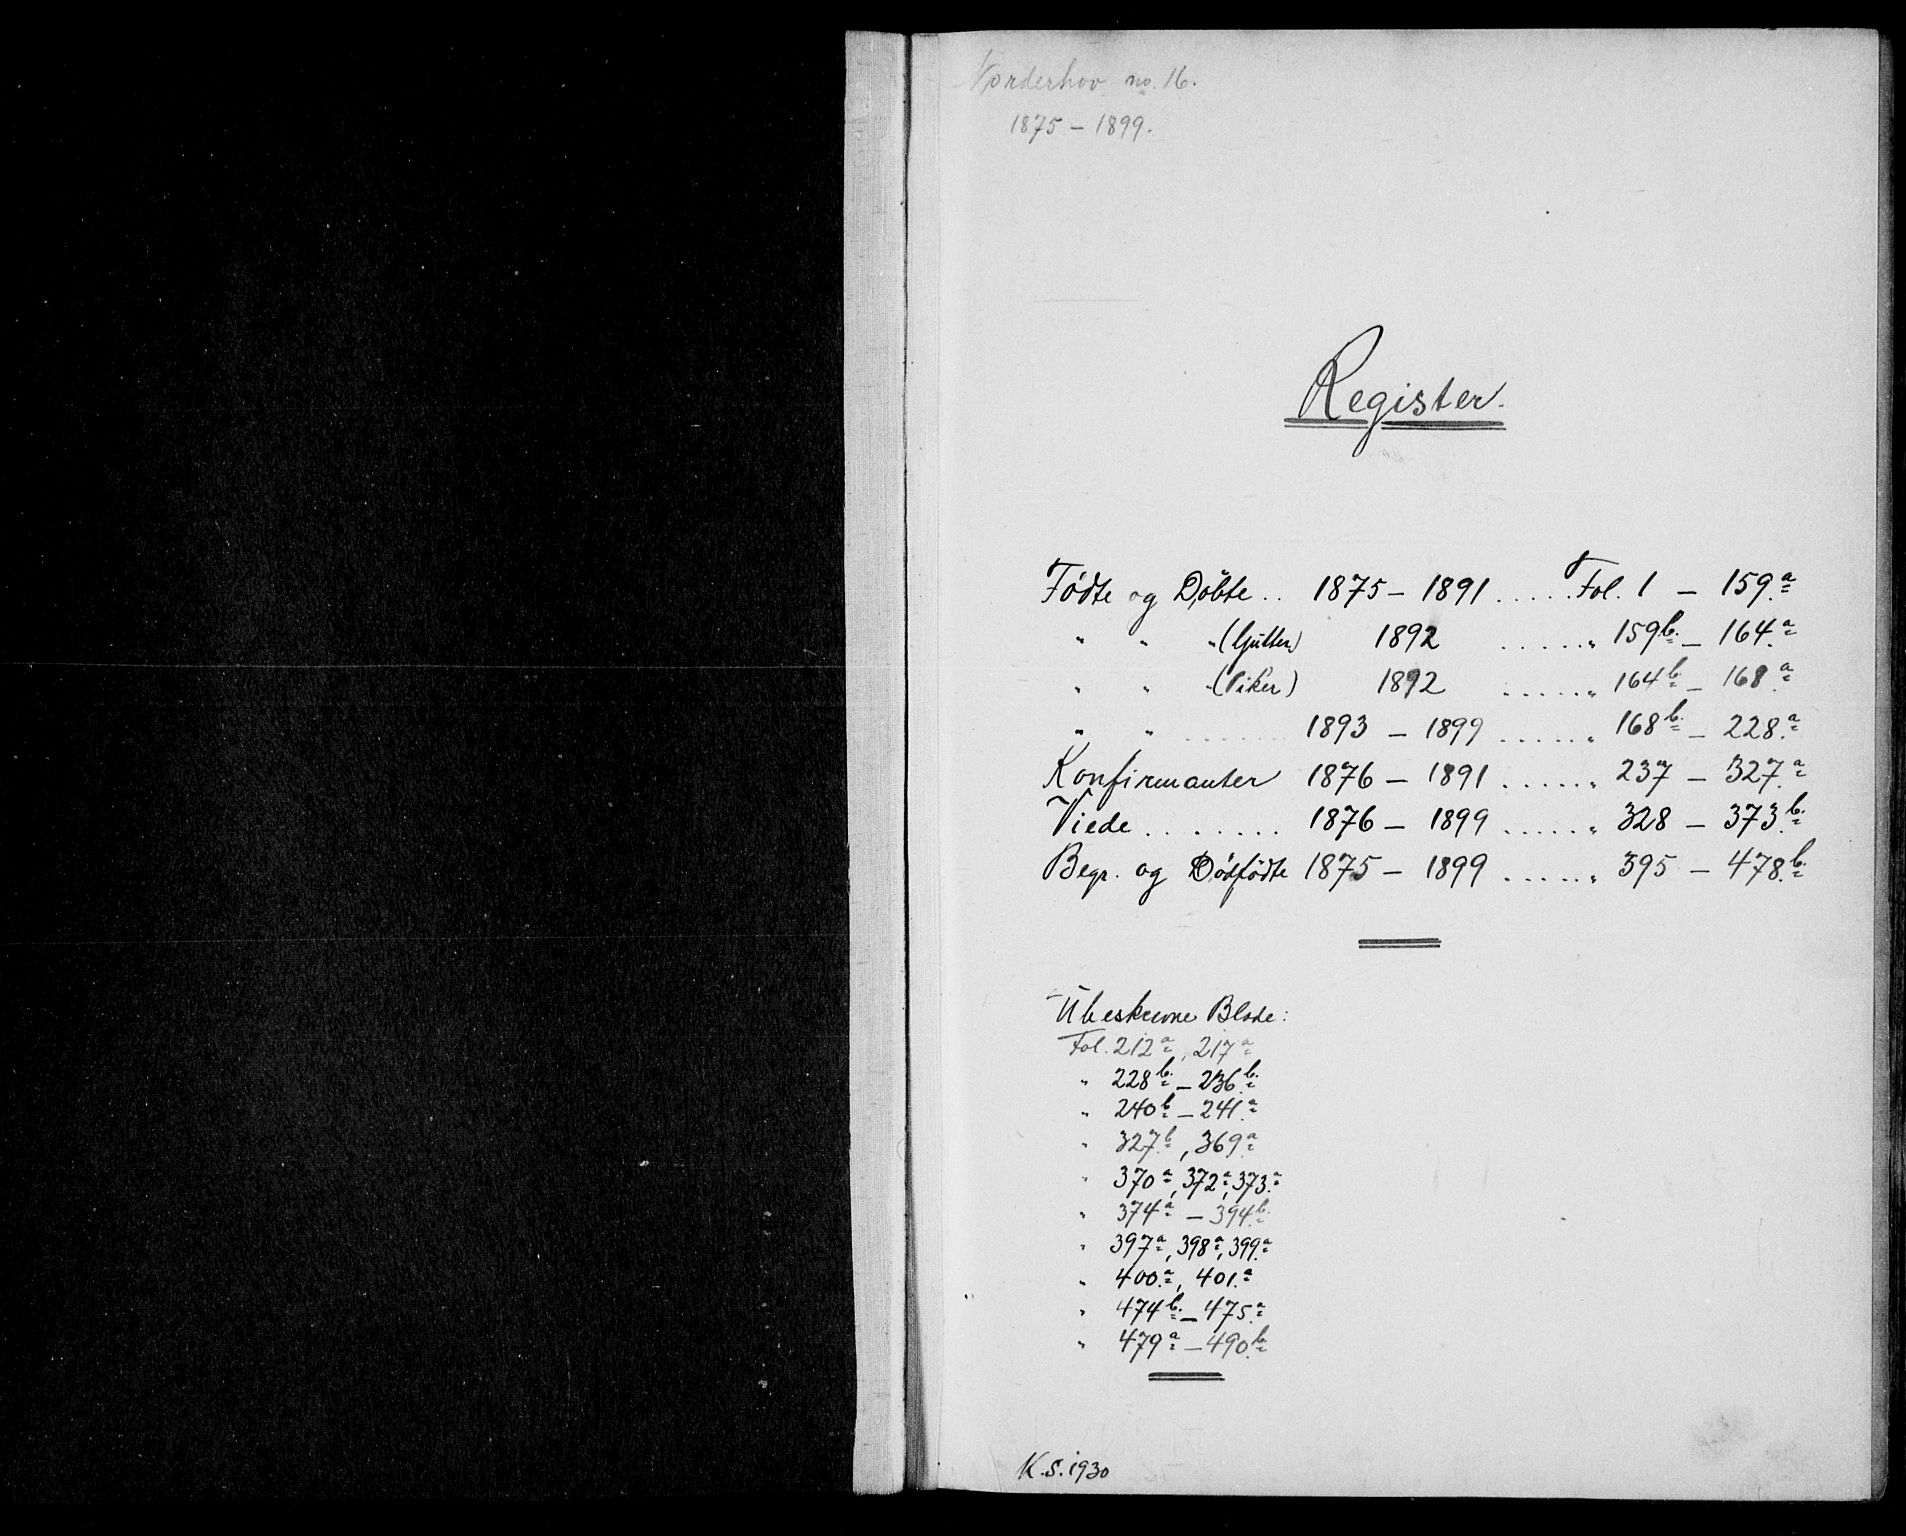 Norderhov no. 16.
1875 – 1899.
Register.
Fødte og Døbte .. 1875 – 1891 ..... Fol. 1 – 159.a
" " " (Gutter) 1892 ..... " 159b. – 164.a
" " " (Piker) 1892 ..... " 164b. – 168.a
" " ....... 1893 – 1899 ..... " 168b. – 228.a
Konfirmanter 1876 – 1891 ..... " 237 – 327.a
Viede ........ 1876 – 1899 ..... " 328 – 373.b.
Begr. og Dødfødte 1875 – 1899 ..... " 395 – 478.b.
Ubeskrevne Blade:
Fol. 212a, 217a
" 228b. – 236.b.
" 240b – 241.a
" 327.b, 369.a
" 370a, 372a, 373.a
" 374a – 394.b.
" 397a, 398a, 399.a
" 400.a, 401.a
" 474b. – 475.a
" 479a – 490.b.
K.S. 1930